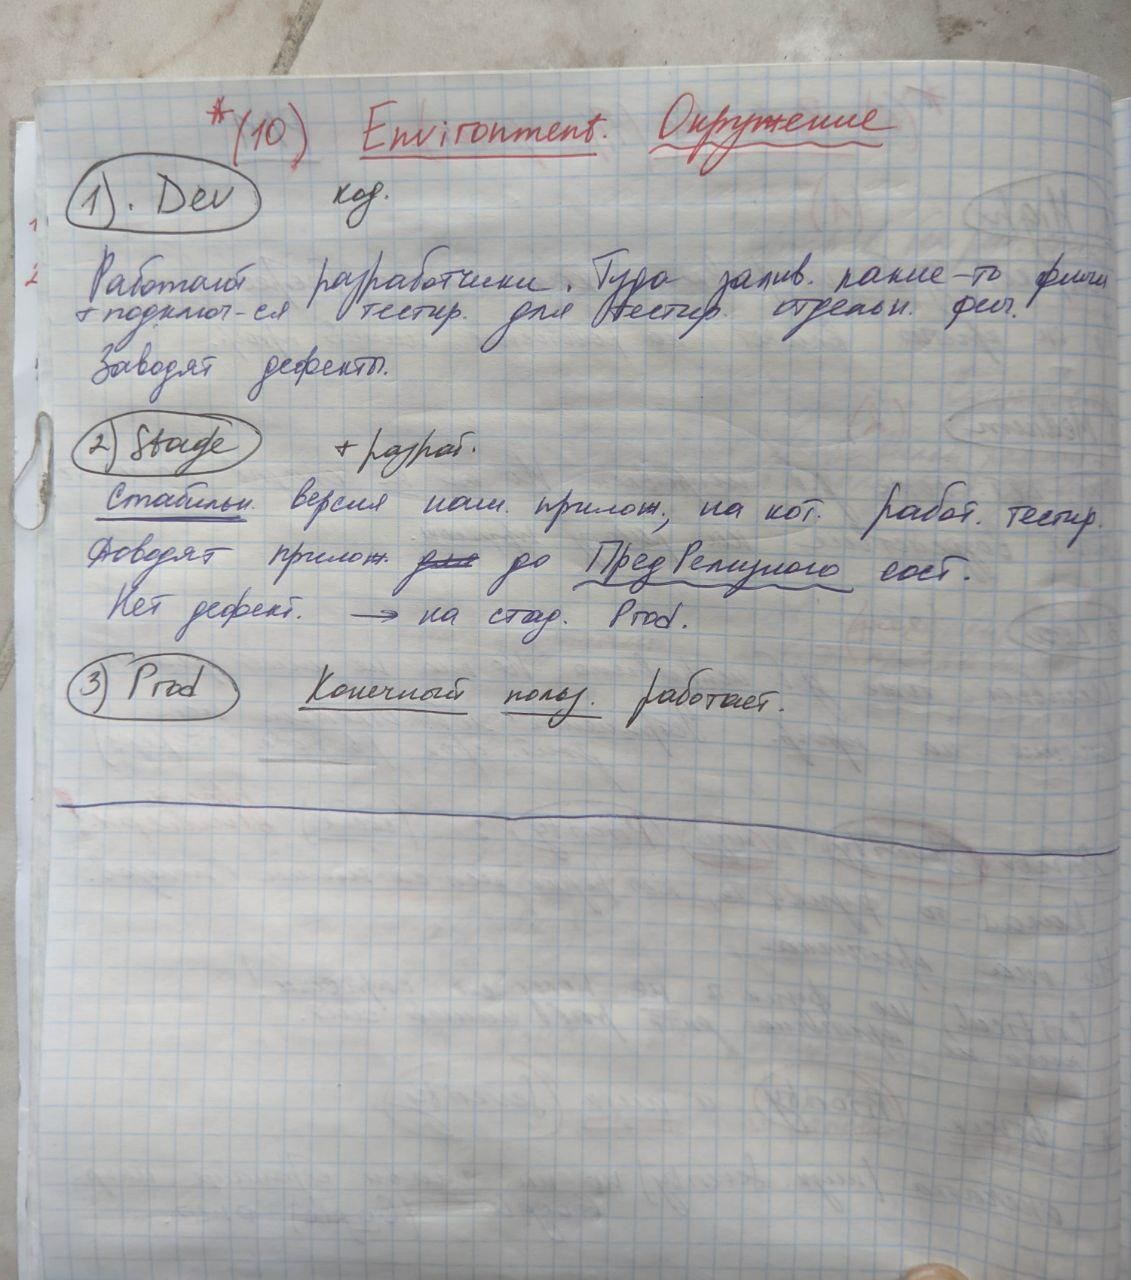 *(10) Environment. Окружение
1). Dev код.
Работают разработчики. Туда залив. какие-то фичи
+ подключ-ся тестир. для тестир. отдельн. фич.
Заводят дефекты.
2) Stage + разраб.
Стабильн. версия наш. прилож., на кот. работ. тестир.
Доводят прилож. до ПредРелизного сост.
Нет дефект. → на стад. Prod.
3) Prod Конечный польз. работает.